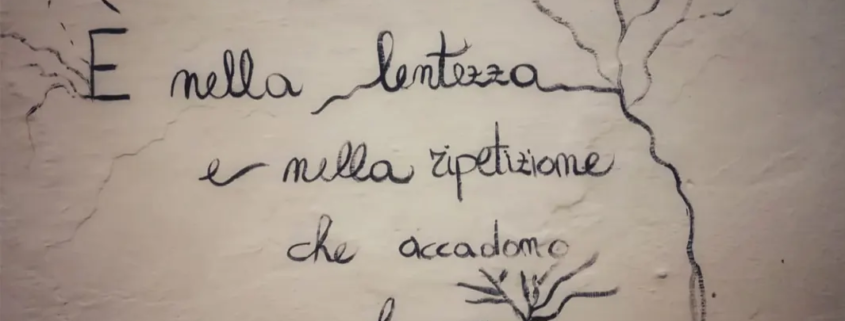 È nella lentezza
e nella ripetizione
che accadono